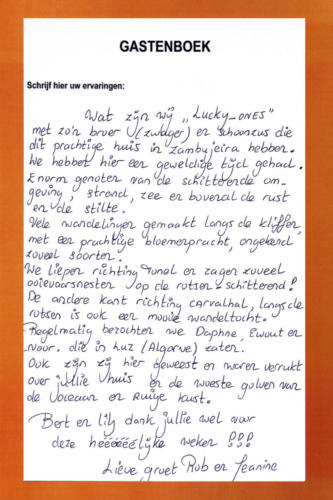 GASTENBOEK
Schrijf hier uw ervaringen:
Wat zijn wij „Lucky-ones"
met zo'n broer (zwager) en schoonzus die
dit prachtige huis in Zambujeira hebben.
We hebben hier een geweldige tijd gehad.
Enorm genoten van de schitterende om-
geving, strand, zee en bovenal de rust
en de stilte.
Vele wandelingen gemaakt langs de kliffen,
met een prachtige bloemenpracht, ongekend
zoveel soorten.
We liepen richting Tonel en zagen zoveel
ooievaarsnesten op de rotsen - schitterend!
De andere kant richting Carvalhal, langs de
rotsen is ook een mooie wandeltocht.
Regelmatig bezochten we Daphne, Ewout en
Noor. die in Luz (Algarve) zaten.
Ook zijn zij hier geweest en waren verrukt
over jullie huis en de woeste golven van
de Oceaan en Ruige kust.
Bert en Lily dank jullie wel voor
deze hééééélijke weken !!!
Lieve groet Rob en Jeanine